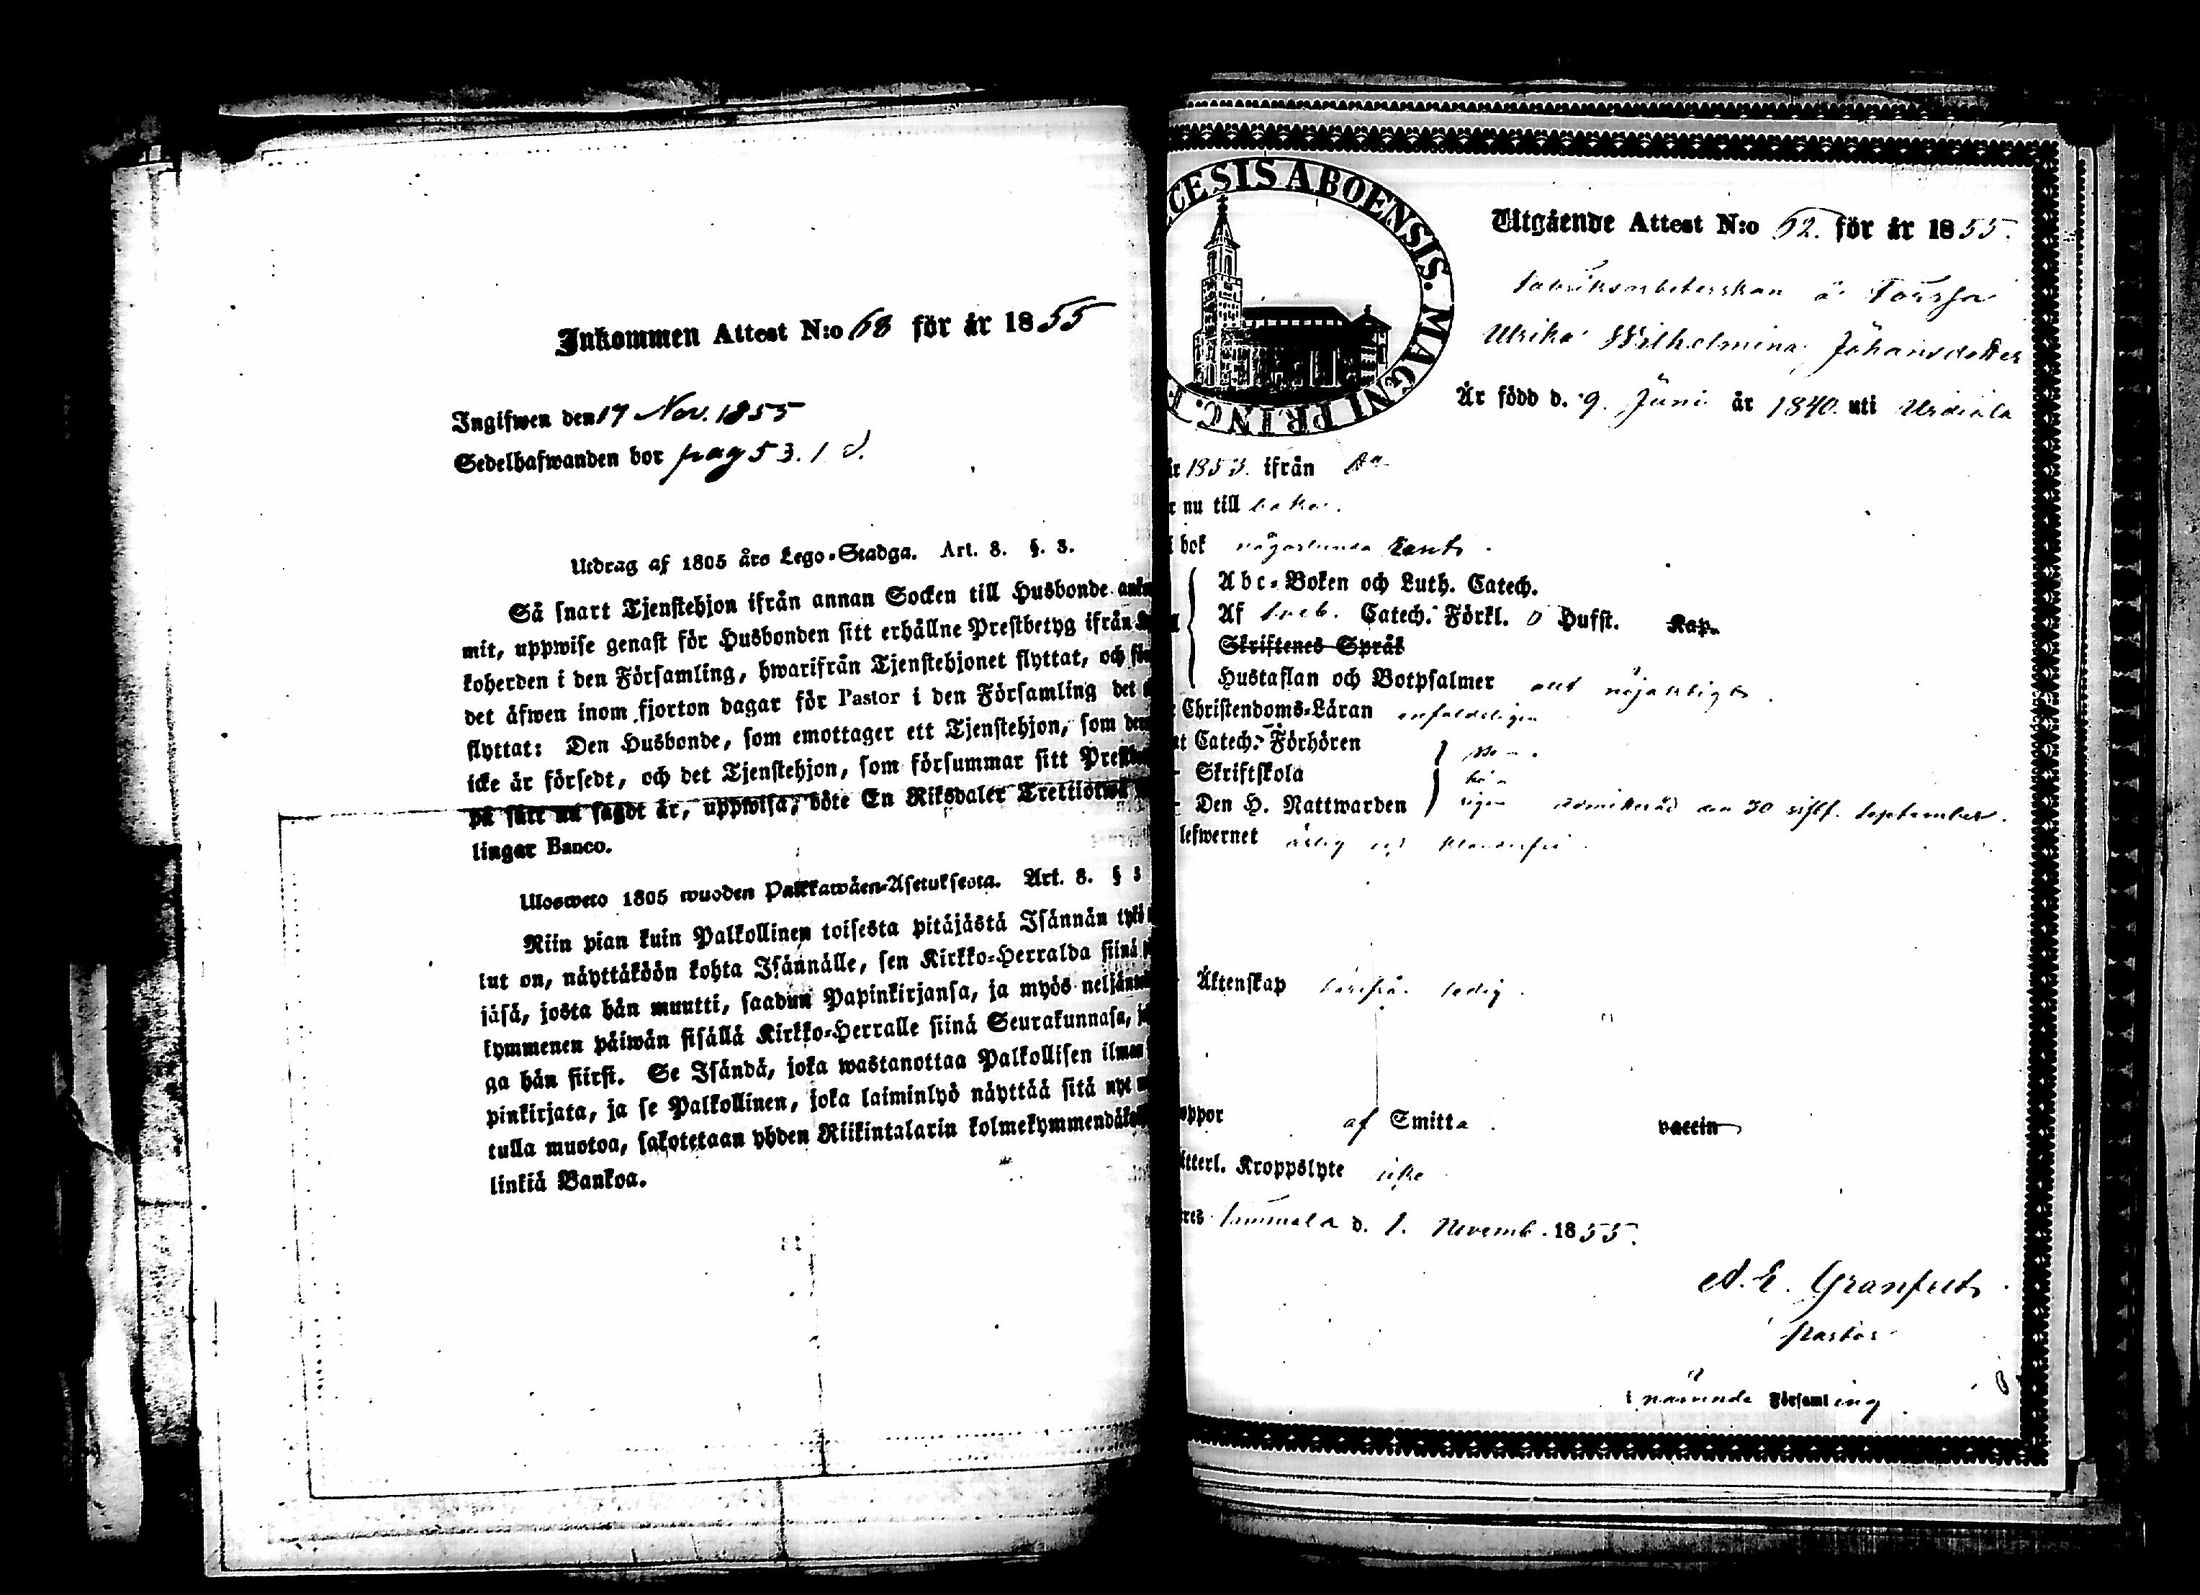 Inkommen Attest N:o 68 för år 1855
Ingifwen den 17 Nov. 1855
Sedelhafwanden bor pag 53. 1 d.
Utdrag af 1805 års Lego-Stadga. Art. 8. §. 3.
Så snart Tjenstehjon ifrån annan Socken till Husbonde
mit, uppwise genast för Husbonden sitt erhållne Prestbetyg ifrån
koherden i den Församling, hwarifrån Tjenstehjonet flyttat, och
det äfwen inom fjorton dagar för Pastor i den Församling det
flyttat: Den Husbonde, som emottager ett Tjenstehjon, som
icke är försedt, och det Tjenstehjon, som försummar sitt
på sätt nu sagdt är, uppwisa, böte En Riksdaler Trettiotwå
lingar Banco.
Ulosweto 1805 wuoden Palkkawäen-Asetuksesta. Art. 8. § 3
Niin pian kuin Palkollinen toisesta pitäjästä Isännän tykö
lut on, näyttäköön kohta Isännälle, sen Kirkko-Herralda siinä
jäsä, josta hän muutti, saadun Papinkirjansa, ja myös
kymmenen päiwän sisällä Kirkko-Herralle siinä Seurakunnasa,
ga hän siirsi. Se Isändä, joka wastanottaa Palkollisen ilman
pinkirjata, ja se Palkollinen, joka laiminlyö näyttää sitä nyt
tulla muotoa, sakotetaan yhden Riikintalarin
linkiä Bankoa.
CESIS ABOENSIS. MAGNI PRINC. F
Utgående Attest N:o 52. för år 1855.
Fabriksarbeterskan å Forssa
Ulrika Wilhelmina Johansdotter
Är född d. 9. Juni år 1840. uti Urdiala
1853. ifrån Do
nu till baka.
bok någorlunda
Abc-Boken och Luth. Catech.
Af Sveb. Catech. Förkl. o Hufst. Kap.
Skriftenes Språk
Hustaflan och Botpsalmer allt nöjaktigt.
Christendoms-Läran enfaldeligen
Catech. Förhören
Skriftskola
Den H. Nattwarden admitterad den 30 sistl. September.
lefwernet ärlig och klanderfri.
Äktenskap härifrån ledig.
oppor af Smitta vaccin
tterl. Kroppslyte icke
Tammela d. 1. Novemb. 1855.
A. E. Granfelt
Pastor
i nämnde Församling